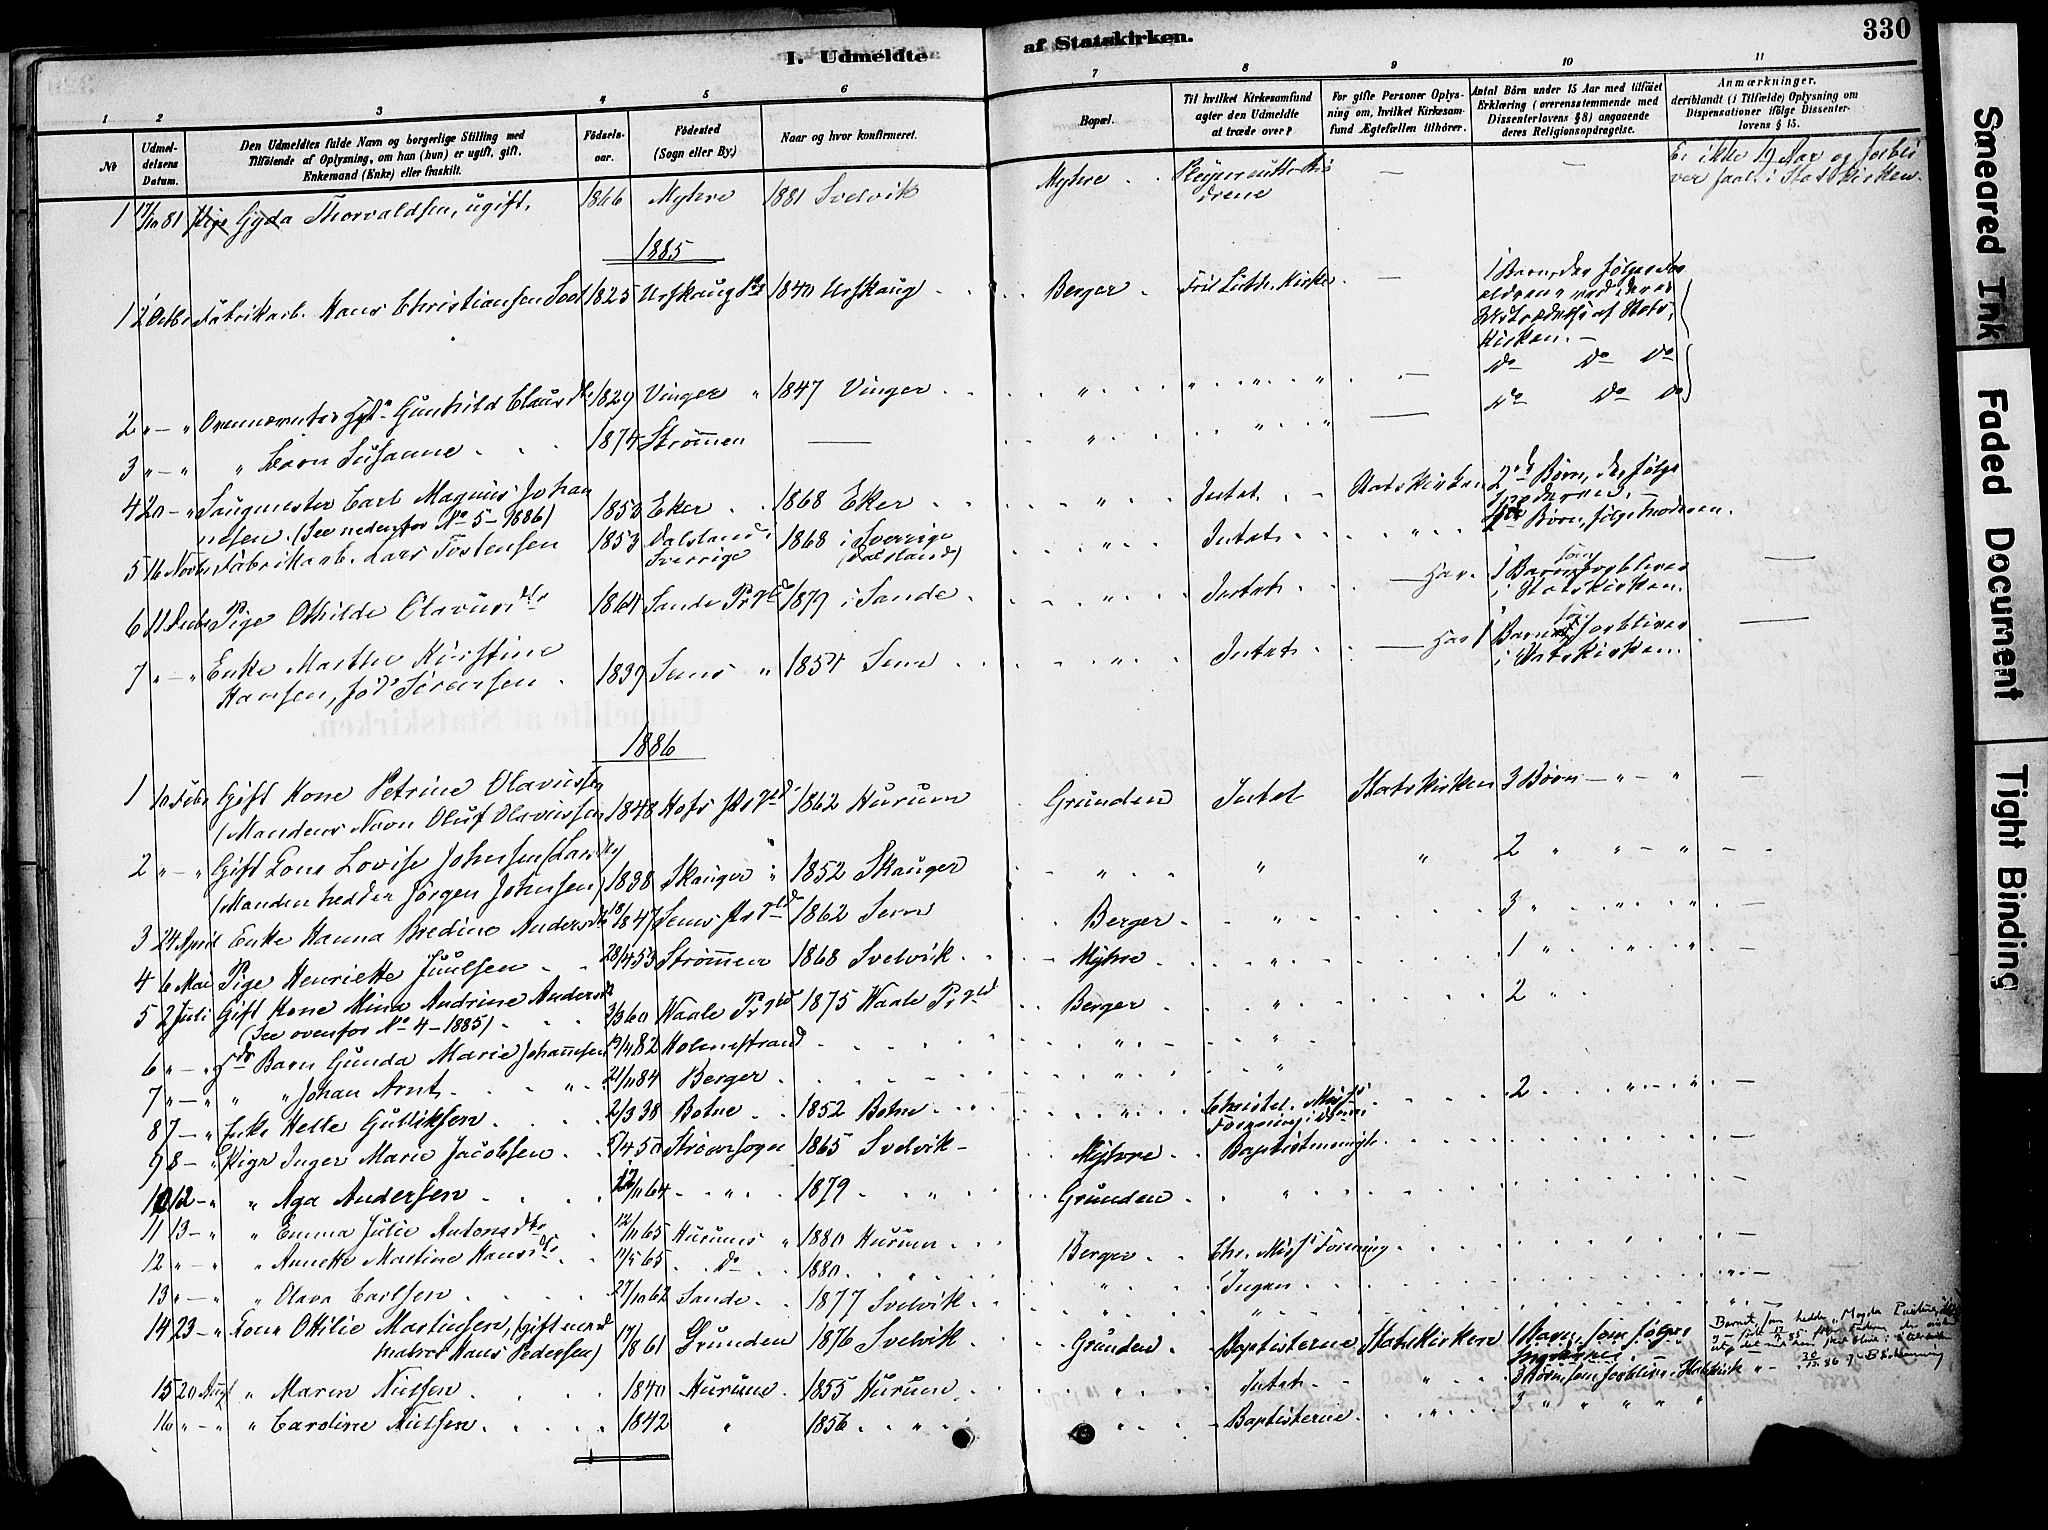 I. Udmeldte
af Statskirken.
330
1 2 3 4 5 6 7 8 9 10 11
№
Udmel-
delsens
Datum.
Den Udmeldtes fulde Navn og borgerlige Stilling med
Tilföiende af Oplysning, om han (hun) er ugift, gift,
Enkemand (Enke) eller fraskilt.
Födsels-
aar.
Födested
(Sogn eller By.)
Naar og hvor konfirmeret.
Bopæl.
Til hvilket Kirkesamfund
agter den Udmeldte
at træde over?
For gifte Personer Oplys-
ning om, hvilket Kirkesam-
fund Ægtefællen tilhörer.
Antal Börn under 15 Aar med tilföiet
Erklæring (overensstemmende med
Dissenterlovens § 8) angaaende
deres Religionsopdragelse.
Anmærkninger,
deriblandt (i Tilfælde) Oplysning om
Dispensationer ifölge Dissenter-
lovens § 15.
1 17/10 81 Pige Gyda Thorvaldsen, ugift. 1866 Myhre 1881 Svelvik Myhre — — Er ikke 19 Aar og forbli
ver faat i Statskirken.
1885
1 2 Octbr Fabrikarb. Hans Christiansen 1825 Urskaug 1840 Urskaug Berger Frie Luth. Kirke — 1 Barn, der følger For
ældrene ved deres
Udtrædelse af Stats
kirken. —
2 " — " Ovennævntes Gunhild Clausdtr 1829 Vinger " 1847 Vinger " " " " — Do Do Do
3 " — " " Barn Susanne 1874 Strömmen — " " " — Do Do Do
4 20 — " Saugmester Carl Magnus Johan
nesen. (See nedenfor No 5 – 1886) 1853 Eker 1868 Eker " Intet Statskirken 2 Börn, der følge
Moderen. —
5 16 Novbr Fabrikarb. Lars Tostensen 1853 Dalsland i
Sverrige 1868 i Sverrige
(Dalsland) " Intet " Börn, følge Moderen.
6 11 Decbr Pige Othilde Olavusdtr 1864 Sande Prgld 1879 i Sande " Intet — Har 1 Barn som forbliver
i Statskirken. —
7 " — " Enke Marthe Kirstine
Hansen, fød Sörensen 1839 Sems " 1854 Sem " Intet — Har 1 Barn som forbliver
i Statskirken. —
1886
1 10 Febr Gift Kone Petrine Olavussen
(Mandens Navn Oluf Olavussen 1848 Hofs Prgld 1862 Hurum Grunden Intet Statskirken 3 Börn — " — " —
2 " — " Gift Kone Lovise Johnsen
(Manden hedder Jörgen Johnsen) 1838 Skauger " 1852 Skauger " " " 2 " " — " —
3 24 April Enke Hanna Bredine Andersdtr 1847 Sems Prgld 1862 Sem Berger " 3 " " " —
4 6 Mai Pige Henriette Juulsen 28/4 53 Strömmen 1868 Svelvik Myhre " 1 " " " —
5 2 Juli Gift Kone Mina Andrine Andersdtr
(See ovenfor No 4 – 1885) 2/3 60 Vaale Prgld 1875 Vaale Prgld Berger " 2 "
6 " — " Ds Barn Gunda Marie Johannesen 82 Holmestrand " "
7 " — " " " Johan Arnt " 21/11 84 Berger " "
8 7 — " Enke Helle Gulliksen 2/3 38 Botne 1852 Botne " Christel. Miss
Forening i 2 " — " —
9 8 — " Pige Inger Marie Jacobsen 50 Strömsogn 1865 Svelvik Myhre Baptistmenigh. —
10 12 — " " Aga Andersen 12/11 64 " 1879 " Grunden " —
11 13 — " " Emma Julie Antonsdtr 12/11 65 Hurums " 1880 Hurum Berger Chr. Miss Forening —
12 " — " " Annette Martine Hansdtr 65 Do 1880 " " Ingen " —
13 " — " " Olava Carlsen 27/10 62 Sande 1877 Svelvik " " " —
14 23 — " Kone Ottilie Martinsen, (gift med
matros Hans Pedersen) 61 Grunden 1876 Svelvik Grunden Baptisterne Statskirken 1 Barn, som følger
Barnet, som hedder Magda
15 20 Augt " Maren Nielsen 1840 Hurum 1855 Hurum " Intet " 3 Börn, som forblive i Statskirk " —
16 " — " " Caroline Nielsen 1842 " 1856 " " Baptisterne " 3 " " " "
Smeared Ink
Faded Document
Tight Binding